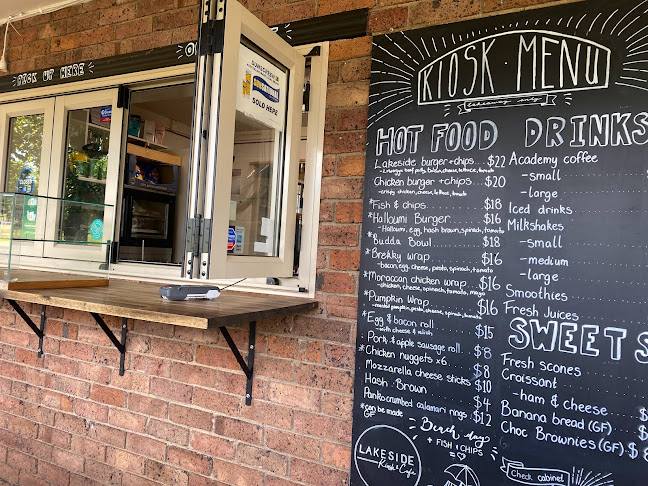 PICK UP HERE
SOLD HERE
KIOSK MENU
takeaway only
HOT FOOD
Lakeside burger + chips $22
Chicken burger + chips $20
- crispy chicken, cheese, lettuce, tomato
* Fish & chips $18
* Halloumi Burger $16
- Halloumi, egg, hash brown, spinach, tomato
* Budda Bowl $18
* Brekky wrap $16
- bacon, egg, cheese, pesto, spinach, tomato
* Moroccan chicken wrap $16
- chicken, cheese, spinach, tomato, mayo
* Pumpkin Wrap $16
* Egg & bacon roll $15
- with cheese & relish
Pork & apple sausage roll $8
* Chicken nuggets x6 $8
Mozzarella cheese sticks $10
Hash Brown $4
Panko crumbed calamari rings $12
* can be made
GF
Beach day
+ FISH + CHIPS
LAKESIDE
Kiosk & Cafe
DRINKS
Academy coffee
- small
- large
Iced drinks
Milkshakes
- small
- medium
- large
Smoothies
Fresh Juices
SWEET S
Fresh scones
Croissant
- ham & cheese $
Banana bread (GF) $
Choc Brownies (GF) $8
Check cabinet